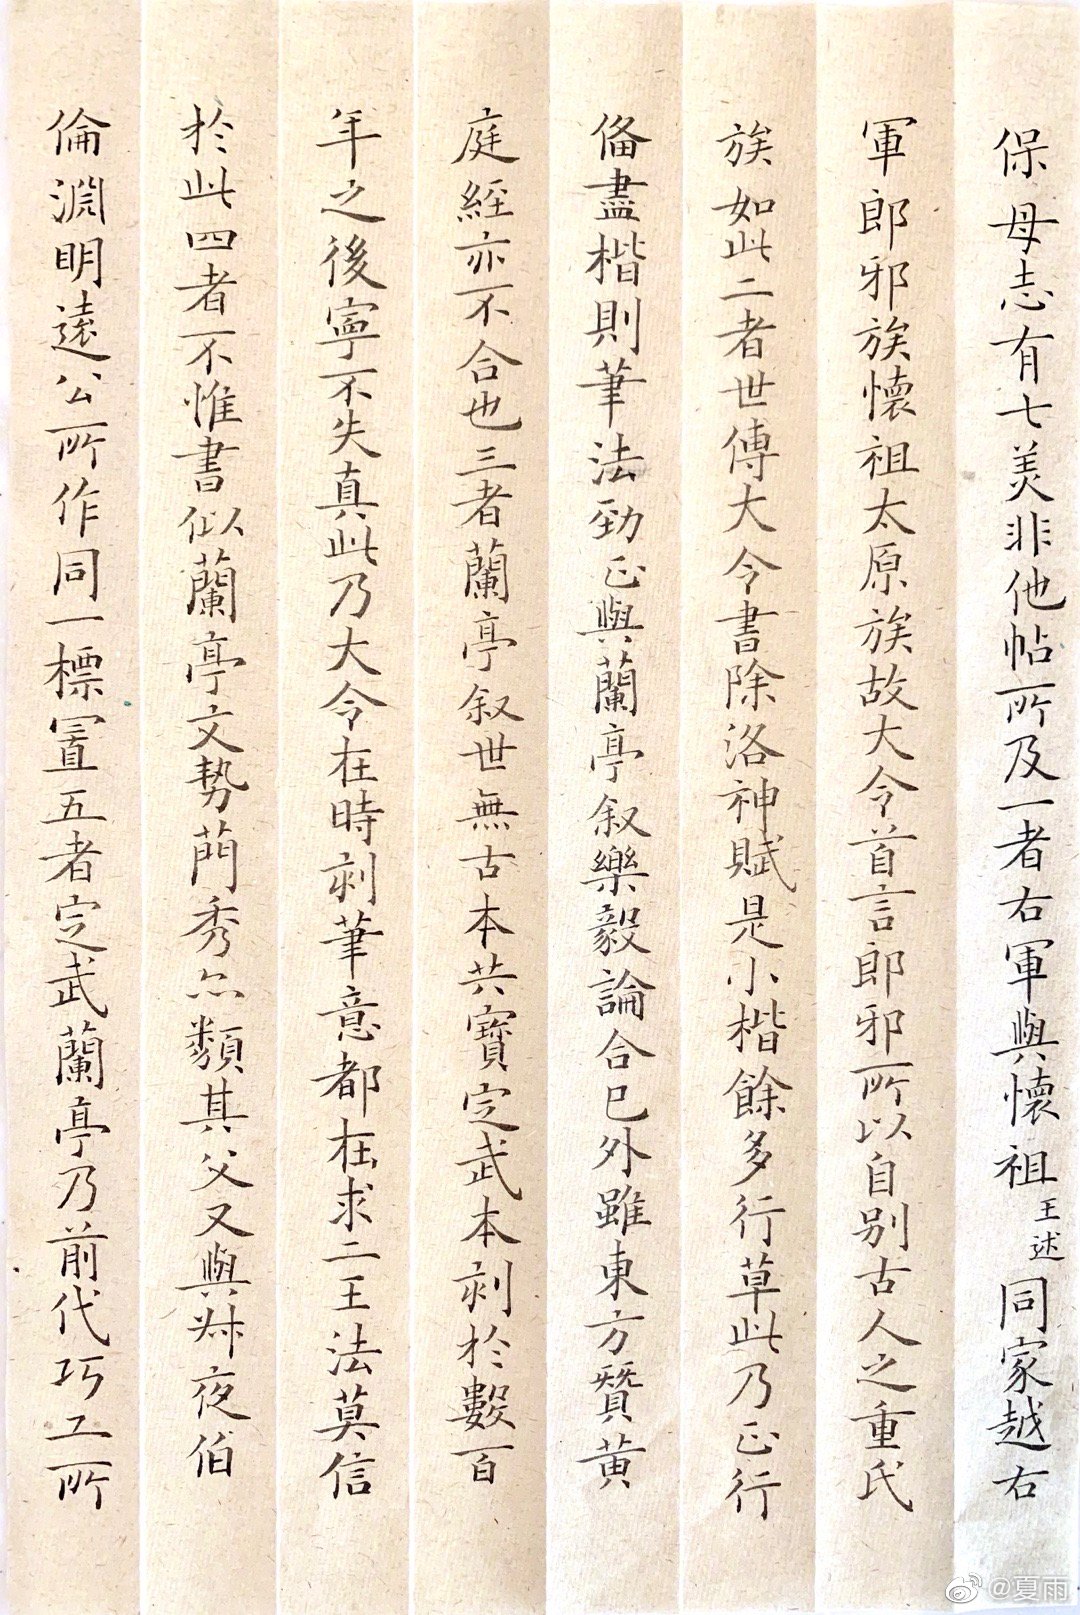 保母志有七美非他帖所及一者右軍與懷祖王述同家越右
軍郎邪族懷祖太原族故大令首言郎邪所以自別古人之重氏
族如此二者世傳大令書除洛神賦是小楷餘多行草此乃正行
俻盡楷則筆法勁正與蘭亭叙樂毅論合已外雖東方贊黄
庭經亦不合也三者蘭亭叙世無古本共寶定武本刻於數百
年之後寧不失真此乃大令在時刻筆意都在求二王法莫信
於此四者不惟書似蘭亭文勢蕳秀亦類其父又與叔夜伯
倫淵明遠公所作同一標置五者定武蘭亭乃前代巧工所
@夏雨